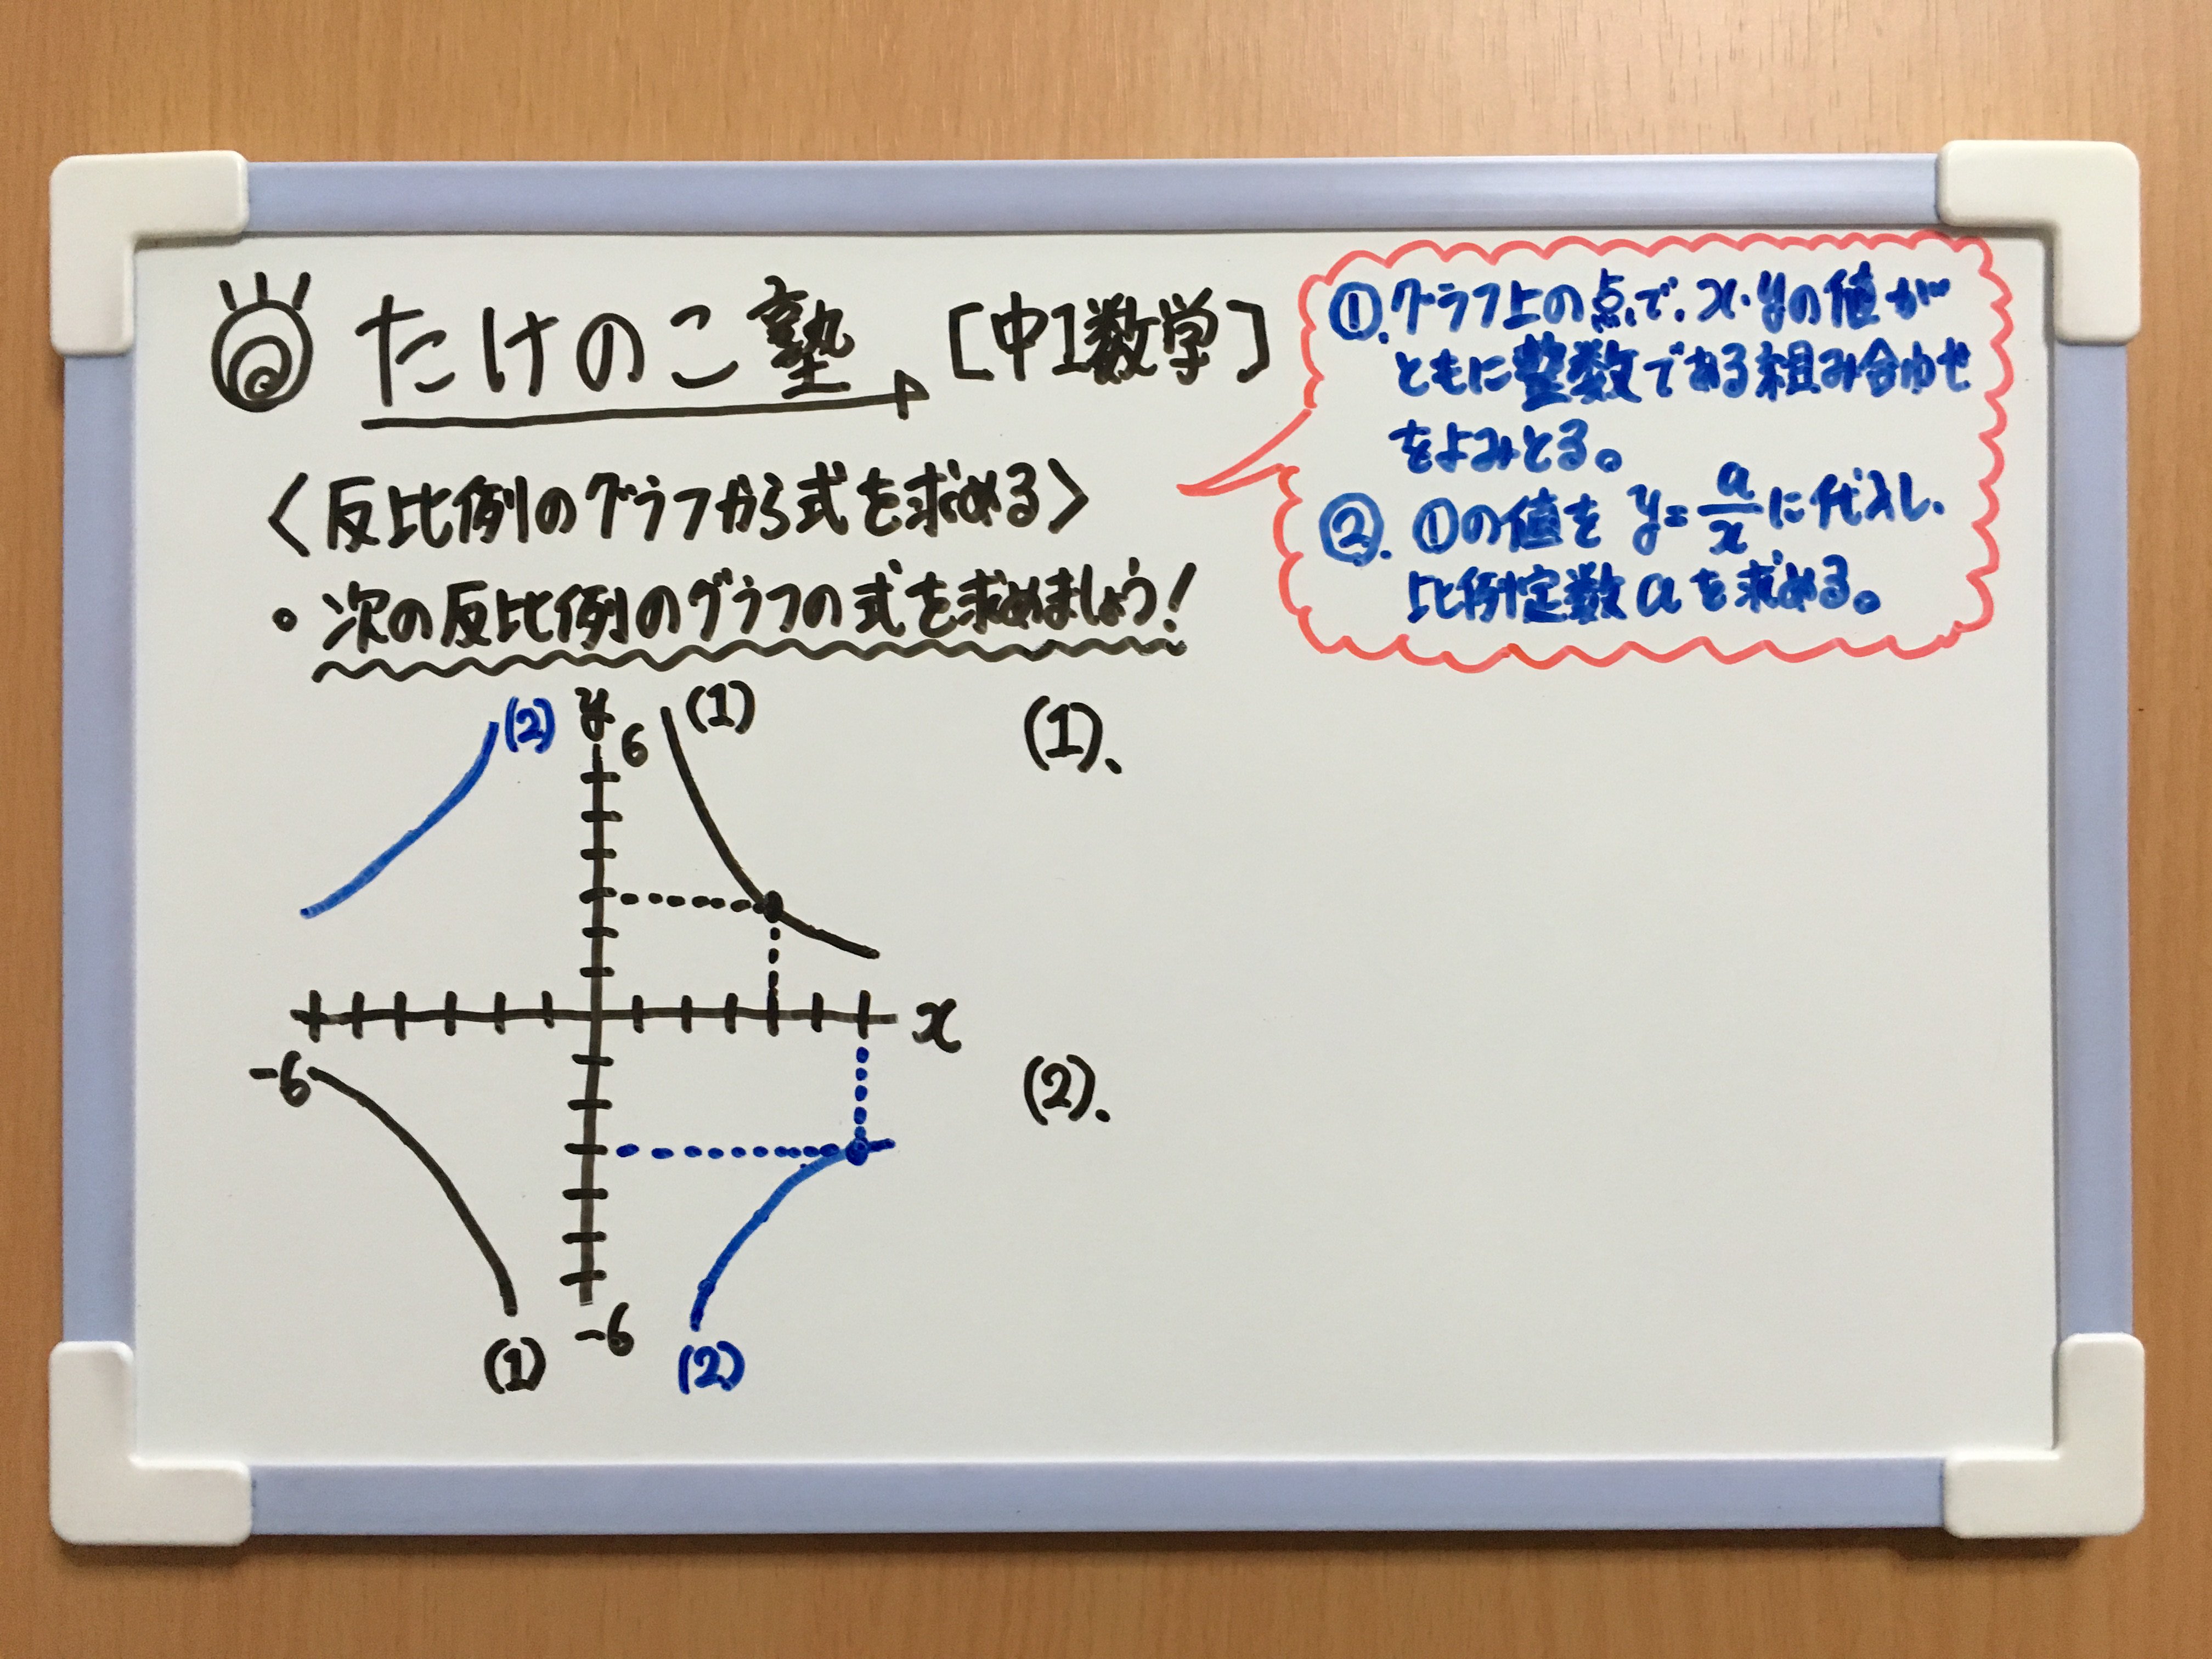 たけのこ塾 [中1数学]
<反比例のグラフから式を求める>
・次の反比例のグラフの式を求めましょう!
①. グラフ上の点で、x・yの値が
ともに整数である組み合わせ
をよみとる。
②. ①の値を y=a/xに代入し、
比例定数aを求める。
(2) y 6 (1)
x
-6
(1) -6 (2)
(1).
(2).